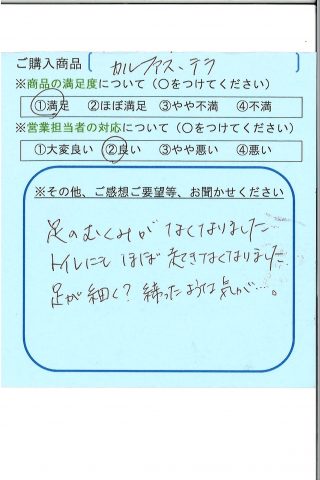 ご購入商品 カルファス・テラ
※商品の満足度について（○をつけてください）
①満足 ②ほぼ満足 ③やや不満 ④不満
※営業担当者の対応について（○をつけてください）
①大変良い ②良い ③やや悪い ④悪い
※その他、ご感想ご要望等、お聞かせください
足のむくみが なくなりました…
トイレにも ほぼ 起きなくなりました
足が 細く？ 締ったような気が…。